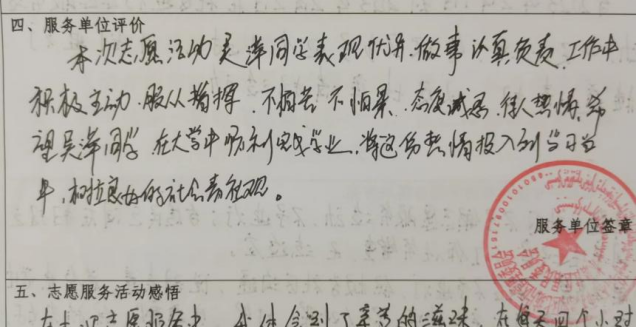 四、服务单位评价
本次志愿活动吴萍同学表现优异,做事认真负责,工作中
积极主动,服从指挥,不怕苦不怕累,态度诚恳,待人热情,希
望吴萍同学在大学中顺利完成学业,将这份热情投入到学习当
中,树立良好的社会责任观。
服务单位签章
五、志愿服务活动感悟
在 志愿服务中,我体会到了 的滋味,在每天四个小时